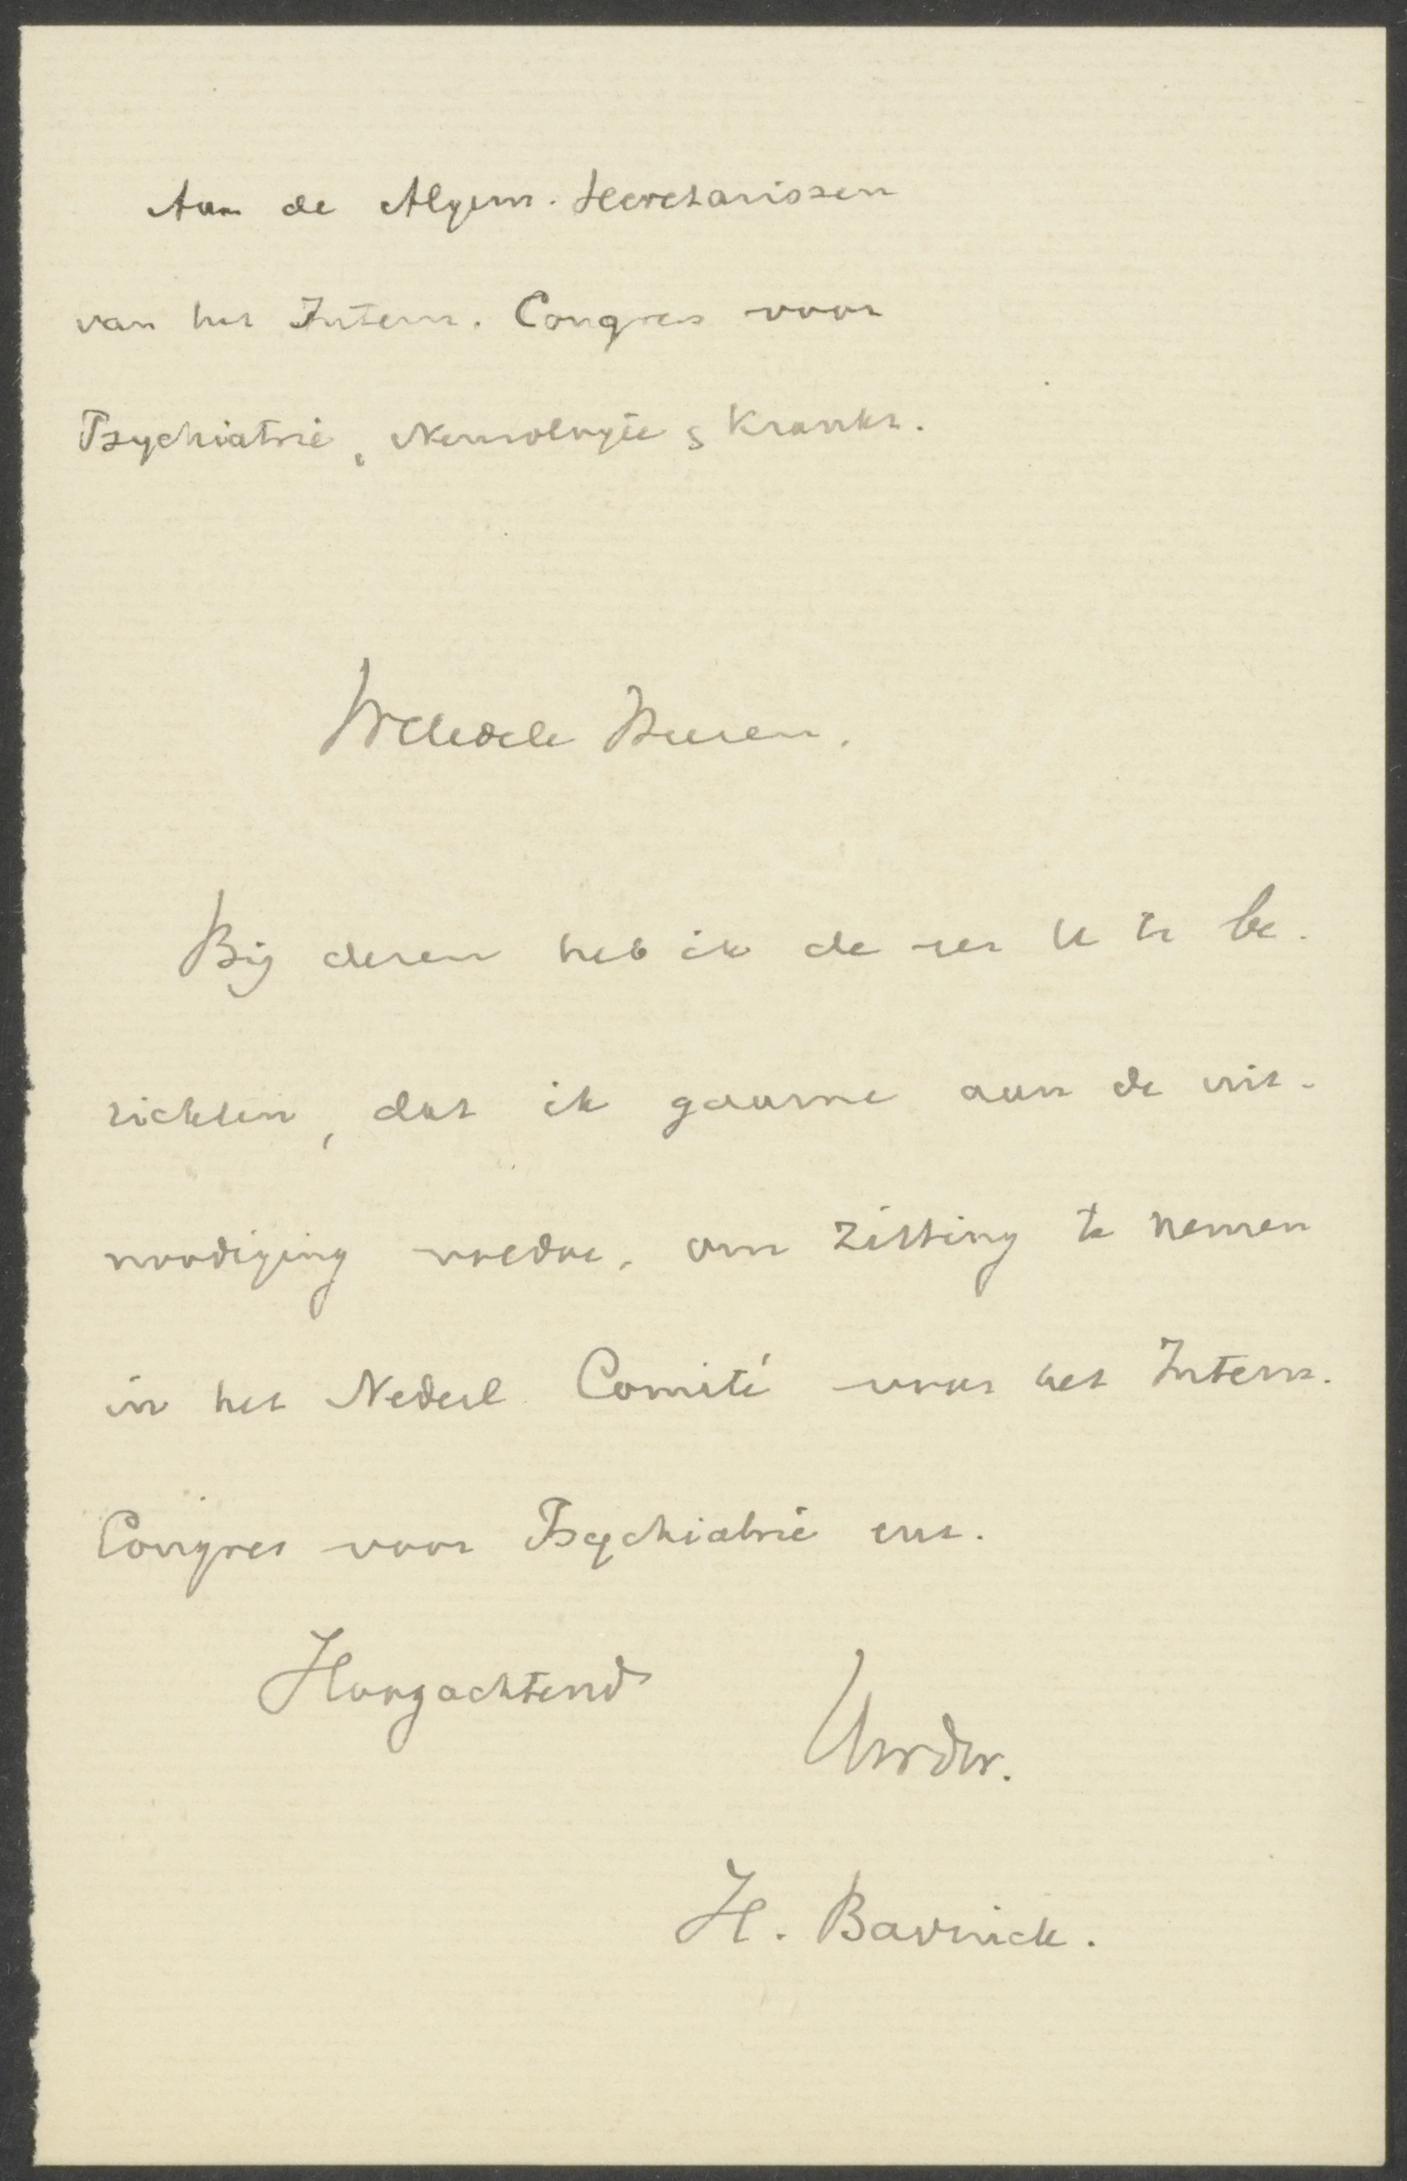 Aan de Algem. Secretarissen
van het Intern. Congres voor
Psychiatrie, Neurologie & Krankz.
WelEdele Heeren.
Bij dezen heb ik de eer U te be-
richten, dat ik gaarne aan de uit-
noodiging voldoe, om zitting te nemen
in het Nederl Comité voor het Intern.
Congres voor Psychiatrie enz.
Hoogachtend
Uwdw.
H. Bavinck.